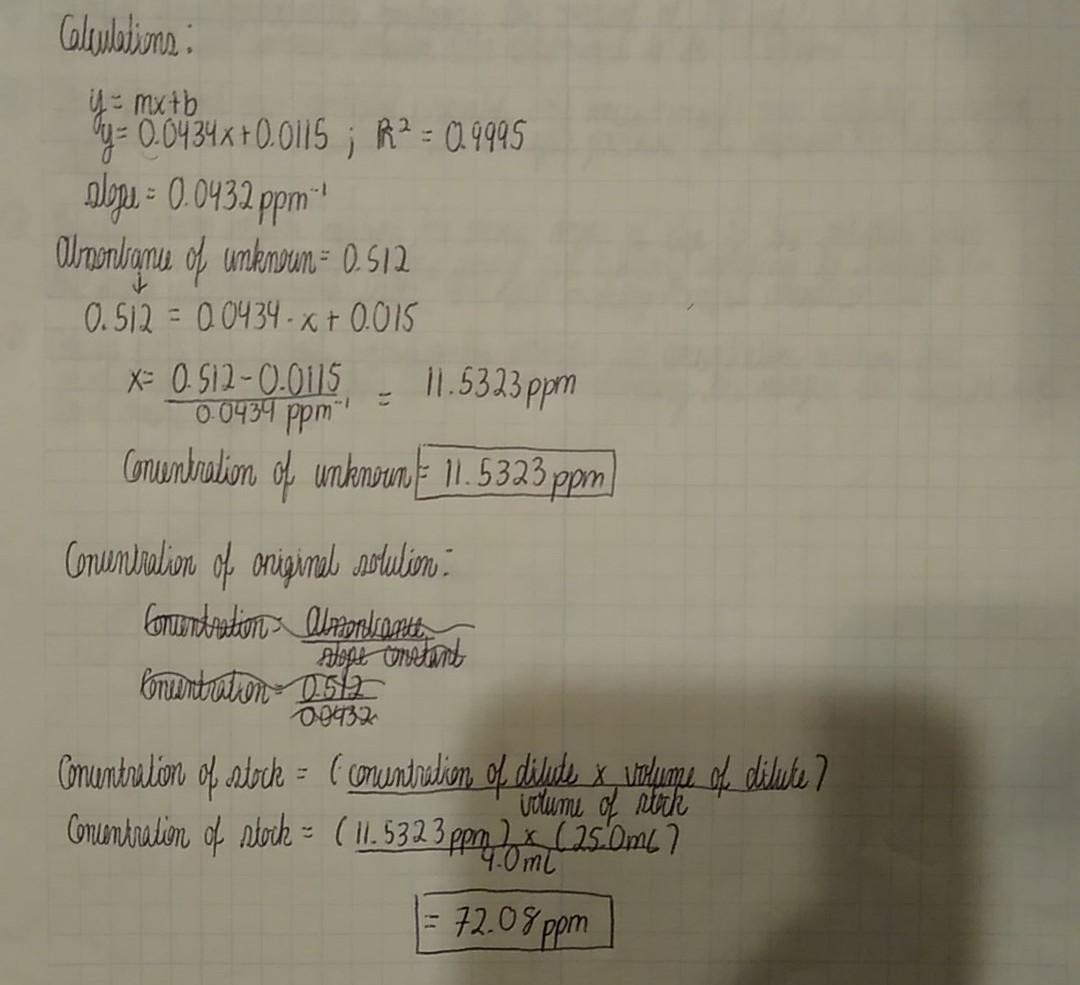 Calculations:
y = mx+b
y = 0.0434x+0.0115 ; R² = 0.9995
slope = 0.0432 ppm⁻¹
Absorbance of unknown = 0.512
↓
0.512 = 0.0434 · x + 0.015
x = 0.512 - 0.0115
0.0434 ppm⁻¹
= 11.5323 ppm
Concentration of unknown = 11.5323 ppm
Concentration of original solution:
Concentration = Absorbance
slope constant
Concentration = 0.512
0.0432
Concentration of stock = (concentration of dilute x volume of dilute)
volume of stock
Concentration of stock = (11.5323 ppm) x (25.0mL)
4.0mL
= 72.08 ppm